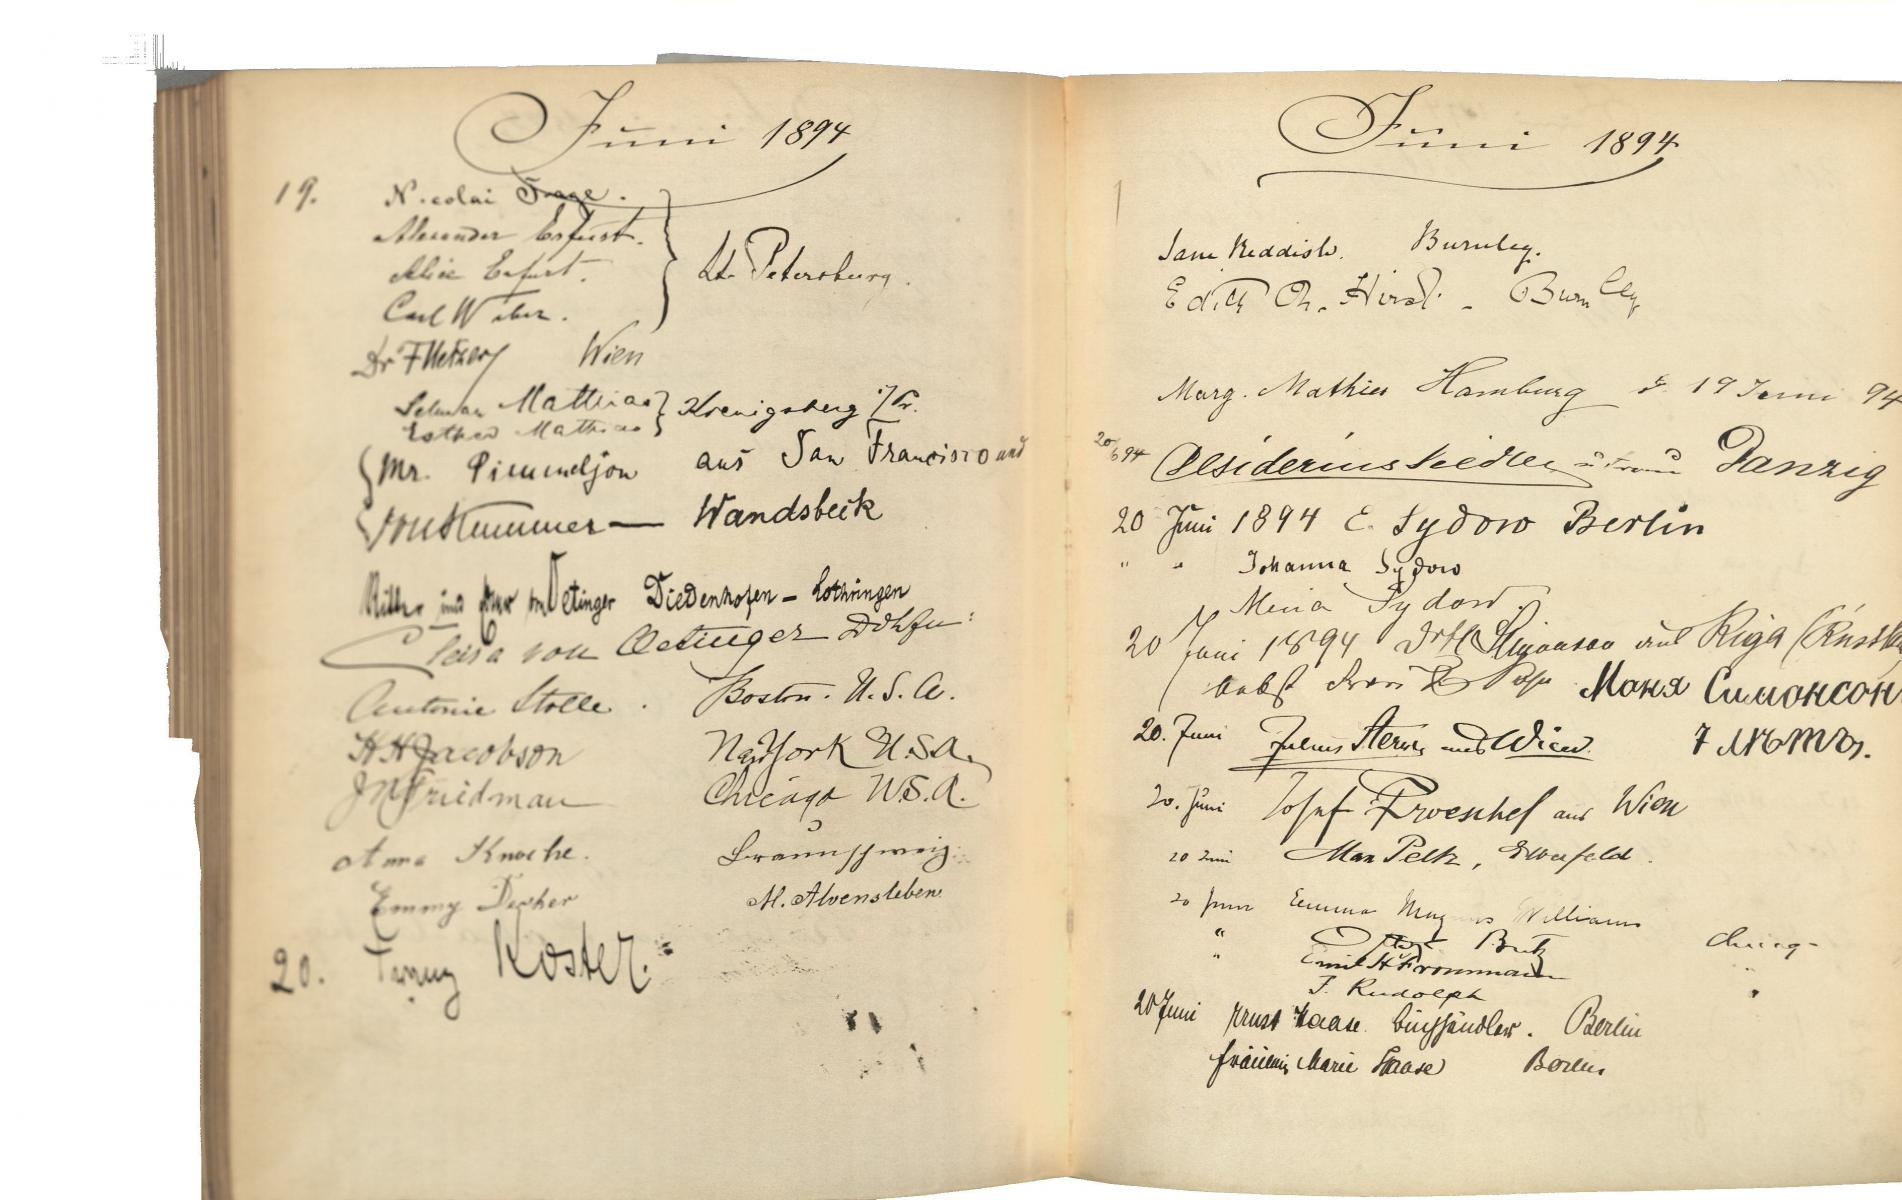 Juni 1894
19. Nicolai
Alexander Erfurt.
Alice Erfurt.
St. Petersburg.
Carl Weber.
Dr F Wien
Selmar Mathias Koenigsberg i/Pr.
Esther Mathias
Mr. Pimmeljon aus San Francisco und
Wandsbeck
und von Oetinger Diedenhofen - Lothringen
von Oetinger
Antonie Stolle. Boston. U.S.A.
H H Jacobson New York U.S.A.
J M Friedman Chicago U.S.A.
Anna Knoche. Braunschweig.
Emmy Decker M. Alvensleben
20. Fanny Koster.
Juni 1894
Jane Reddish. Burnley.
Edith Ch. Hirst. - Burnley
Marg. Mathies Hamburg d. 19 Juni 94
20/6 94 Desiderius Siedler u Frau Danzig
20 Juni 1894 E. Sydow Berlin
" " Johanna Sydow
Meria Sydow.
20 Juni 1894 aus Riga (Russland
nebst Маня Симонсон
7 лѣтъ.
20. Juni Julius Stern aus Wien.
20. Juni Josef Proeschel aus Wien
20 Juni Max Peltz, Elberfeld.
20 Juni Emma Magnus Williams
" Butz Chicago
" Emil H Frommann "
F. Rudolph "
20 Juni Ernst Haase. Buchhändler. Berlin
Fräulein Marie Haase Berlin